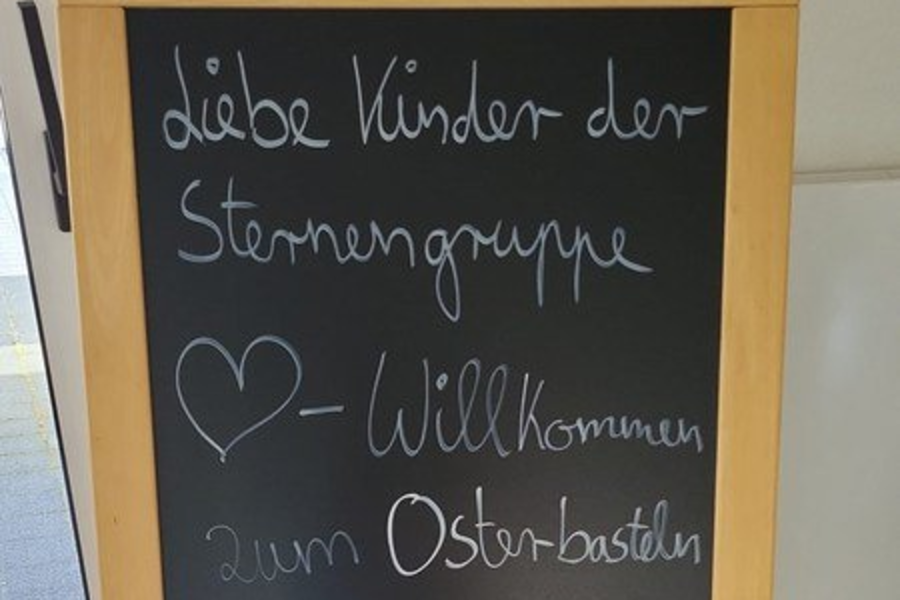 Liebe Kinder der
Sternengruppe
♡- Willkommen
zum Osterbasteln